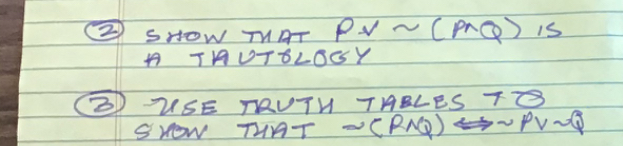 ② SHOW THAT P∨~(P∧Q) IS
A TAUTOLOGY
③ USE TRUTH TABLES TO
SHOW THAT ~(P∧Q) ⟺ ~P∨~Q